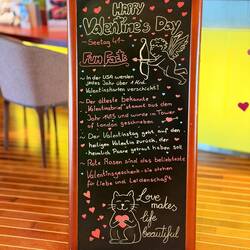 HAPPY
Valentine's Day
~ Seetag 41 ~
Fun Facts
~ In der USA werden
jedes Jahr über 1 Mrd.
Valentinskarten verschickt!
~ Der älteste bekannte
Valentinsbrief stammt aus dem
Jahr 1415 und wurde im Tower
of London geschrieben
~ Der Valentinstag geht auf den
heiligen Valentin zurück, der
heimlich Paare getraut haben soll
~ Rote Rosen sind das beliebteste
Valentinsgeschenk - sie stehen
für Liebe und Leidenschaft
Love
makes
life
beautiful